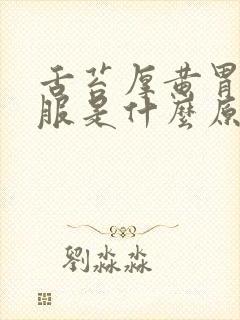 舌苔厚黄胃
服是什麼原
劉淼淼